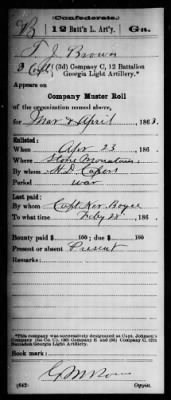 Confederate.
B 12 Batt'n L. Art'y. Ga.
T. J. Brown
(3d) Company C, 12 Battalion
Georgia Light Artillery.*
Appears on
Company Muster Roll
of the organization named above,
for Mar & April, 1863.
Enlisted:
When Apr 23, 186
Where Stone Mountain
By whom H. D. Capers
Period war
Last paid:
By whom Capt Ker Boyce
To what time Feby 28, 186
Bounty paid $ 100; due $ 100
Present or absent Present
Remarks:
*This company was successively designated as Capt. Johnson's
Company
Battalion Georgia Light Artillery.
Book mark:
(642) Copyist.